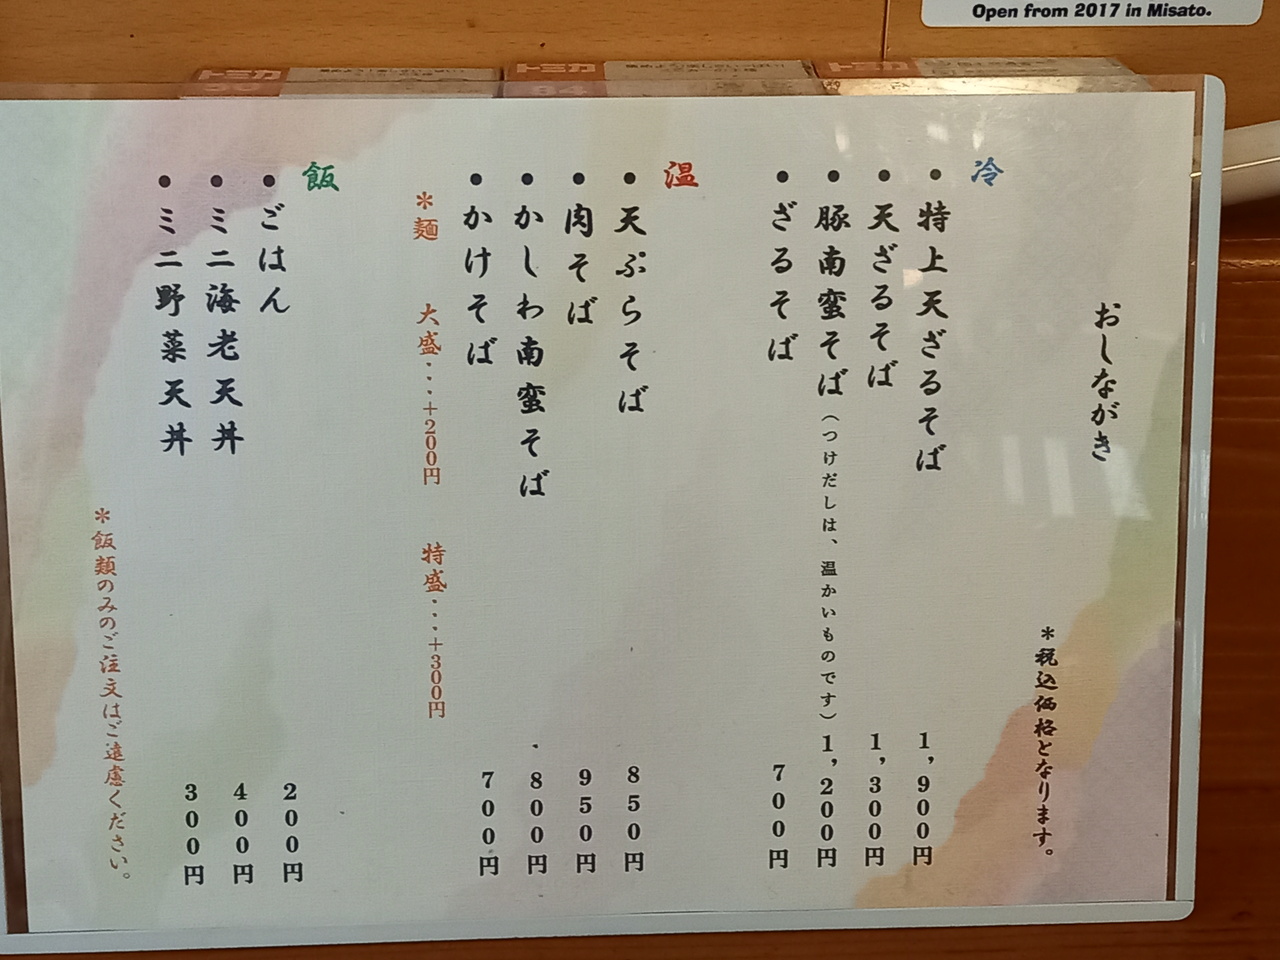 Open from 2017 in Misato.
トミカ
トミカ
84
トミカ
おしながき
＊税込価格となります。
冷
●特上天ざるそば 1,900円
●天ざるそば 1,300円
●豚南蛮そば（つけだしは、温かいものです） 1,200円
●ざるそば 700円
温
●天ぷらそば 850円
●肉そば 950円
●かしわ南蛮そば 800円
●かけそば 700円
＊麺 大盛・・・+200円 特盛・・・+300円
飯
●ごはん 200円
●ミニ海老天丼 400円
●ミニ野菜天丼 300円
＊飯類のみのご注文はご遠慮ください。